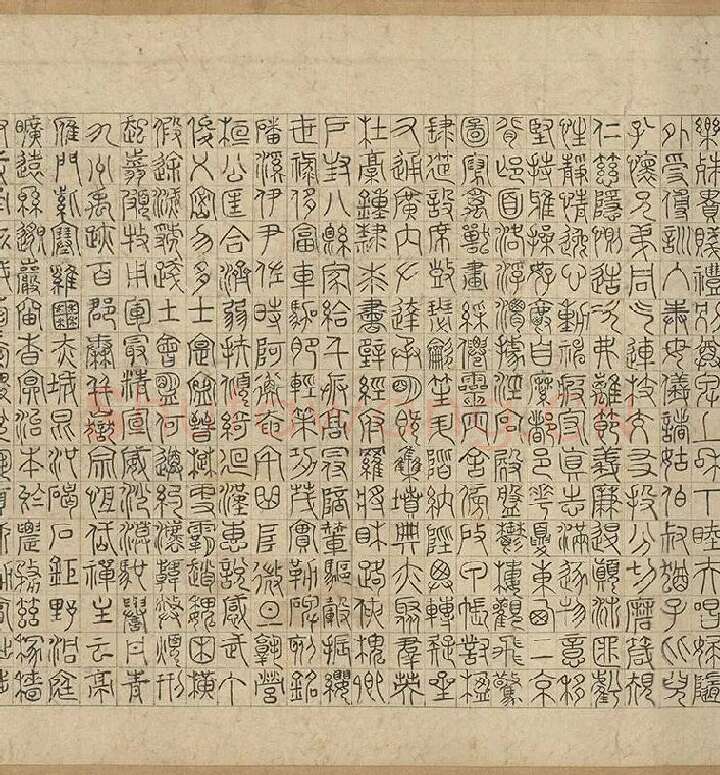 樂殊貴賤禮別尊卑上和下睦夫唱婦隨
外受傅訓入奉母儀諸姑伯叔猶子比兒
孔懷兄弟同氣連枝交友投分切磨箴規
仁慈隱惻造次弗離節義廉退顛沛匪虧
性靜情逸心動神疲守真志滿逐物意移
堅持雅操好爵自縻都邑華夏東西二京
背邙面洛浮渭據涇宮殿盤鬱樓觀飛驚
圖寫禽獸畫綵仙靈丙舍傍啟甲帳對楹
肆筵設席鼓瑟吹笙升階納陛弁轉疑星
右通廣內左達承明既集墳典亦聚群英
杜稾鍾隸漆書壁經府羅將相路俠槐卿
戶封八縣家給千兵高冠陪輦驅轂振纓
世祿侈富車駕肥輕策功茂實勒碑刻銘
磻溪伊尹佐時阿衡奄宅曲阜微旦孰營
桓公匡合濟弱扶傾綺迴漢惠說感武丁
俊乂密勿多士寔寧晉楚更霸趙魏困橫
假途滅虢踐土會盟何遵約法韓弊煩刑
起翦頗牧用軍最精宣威沙漠馳譽丹青
九州禹跡百郡秦并嶽宗恆岱禪主云亭
雁門紫塞雞田赤城昆池碣石鉅野洞庭
曠遠綿邈巖岫杳冥治本於農務茲稼穡